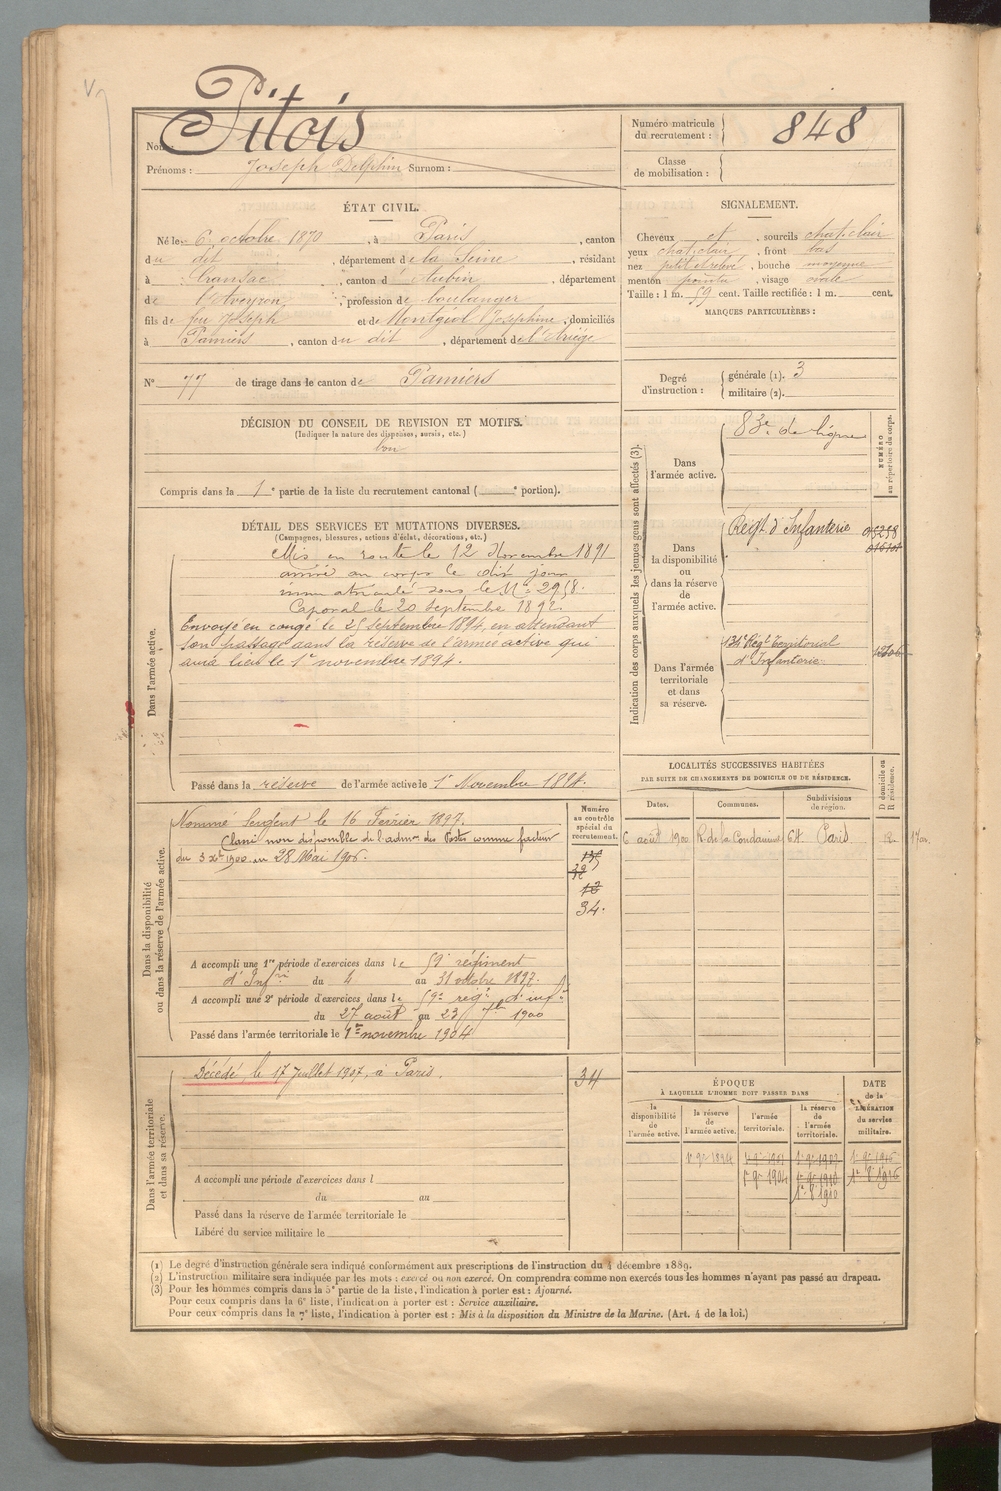 Nom : Pitois
Prénoms : Joseph Delphin Surnom :
Numéro matricule du recrutement : 848
Classe de mobilisation :
ÉTAT CIVIL.
Né le 6 octobre 1870, à Paris, canton
du dit, département de la Seine, résidant
à Cransac, canton d'Aubin, département
de l'Aveyron, profession de boulanger
fils de feu Joseph et de Joséphine, domiciliés
à Pamiers, canton du dit, département de l'Ariège
N° 77 de tirage dans le canton de Pamiers
SIGNALEMENT.
Cheveux et, sourcils chat. clair
yeux chat. clair, front bas
nez petit et relevé, bouche moyenne
menton pointu, visage ovale
Taille : 1 m. 59 cent. Taille rectifiée : 1 m. cent.
MARQUES PARTICULIÈRES :
Degré d'instruction : générale (1). 3
militaire (2).
DÉCISION DU CONSEIL DE REVISION ET MOTIFS.
(Indiquer la nature des dispenses, sursis, etc.)
bon
Compris dans la 1e partie de la liste du recrutement cantonal ( e portion).
Indication des corps auxquels les jeunes gens sont affectés (3).
NUMÉRO au répertoire du corps.
Dans l'armée active. 83e de ligne
Dans la disponibilité ou dans la réserve de l'armée active. Régt d'Infanterie
Dans l'armée territoriale et dans sa réserve. 134e Régt Territorial
d'Infanterie
DÉTAIL DES SERVICES ET MUTATIONS DIVERSES.
(Campagnes, blessures, actions d'éclat, décorations, etc.)
Dans l'armée active.
Mis en route le 12 Novembre 1891
arrivé au corps le dit jour
immatriculé sous le N° 2958.
Caporal le 20 septembre 1892.
Envoyé en congé le 25 septembre 1894, en attendant
son passage dans la réserve de l'armée active qui
aura lieu le 1er novembre 1894.
Passé dans la réserve de l'armée active le 1er Novembre 1894.
Dans la disponibilité ou dans la réserve de l'armée active.
Numéro au contrôle spécial du recrutement.
Nommé Sergent le 16 Février 1897.
Classé non disponible de l'admon des Postes comme facteur
du 3 Xbre 1900 au 28 Mai 1906.
34.
A accompli une 1re période d'exercices dans le 59e régiment
d'Infrie du 4 au 31 octobre 1897.
A accompli une 2e période d'exercices dans le 59e régt d'infie
du 27 août au 23 7bre 1900
Passé dans l'armée territoriale le 1er novembre 1904
Dans l'armée territoriale et dans sa réserve.
Décédé le 17 Juillet 1907, à Paris.
34
A accompli une période d'exercices dans l
du au
Passé dans la réserve de l'armée territoriale le
Libéré du service militaire le
LOCALITÉS SUCCESSIVES HABITÉES
PAR SUITE DE CHANGEMENTS DE DOMICILE OU DE RÉSIDENCE.
Dates. Communes. Subdivisions de région. D domicile ou R résidence.
6 août 1900 R. de la Condamine 64 Paris R
ÉPOQUE
À LAQUELLE L'HOMME DOIT PASSER DANS
la disponibilité de l'armée active. la réserve de l'armée active. l'armée territoriale. la réserve de l'armée territoriale.
DATE de la LIBÉRATION du service militaire.
1er 9bre 1894
1er 9bre 1904
(1) Le degré d'instruction générale sera indiqué conformément aux prescriptions de l'instruction du 4 décembre 1889.
(2) L'instruction militaire sera indiquée par les mots : exercé ou non exercé. On comprendra comme non exercés tous les hommes n'ayant pas passé au drapeau.
(3) Pour les hommes compris dans la 5e partie de la liste, l'indication à porter est : Ajourné.
Pour ceux compris dans la 6e liste, l'indication à porter est : Service auxiliaire.
Pour ceux compris dans la 7e liste, l'indication à porter est : Mis à la disposition du Ministre de la Marine. (Art. 4 de la loi.)